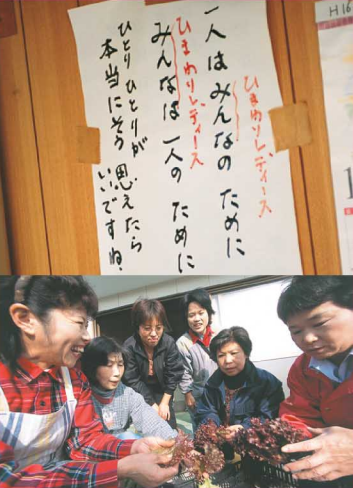 ひまわりレディース
一人はみんなのために
ひまわりレディース
みんなは一人のために
ひとりひとりが
本当にそう思えたら
いいですね。
H16